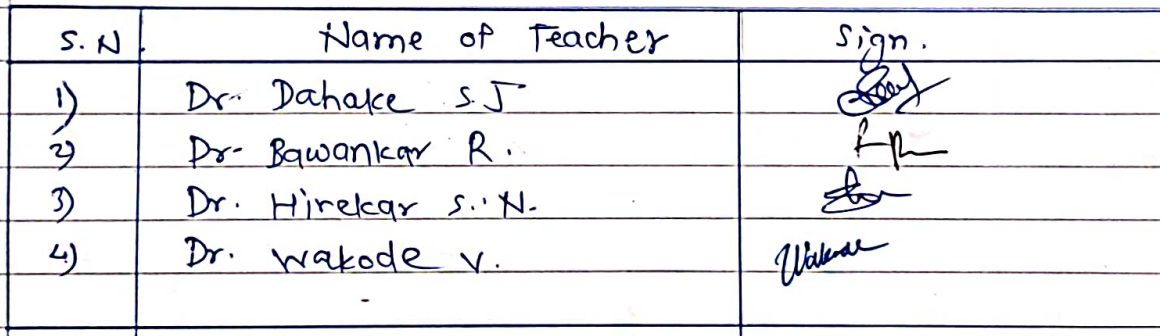 S.N. Name of Teacher Sign.
1) Dr. Dahake S.J
2) Dr. Bawankar R.
3) Dr. Hirekar S.N.
4) Dr. Wakode V. Wakode